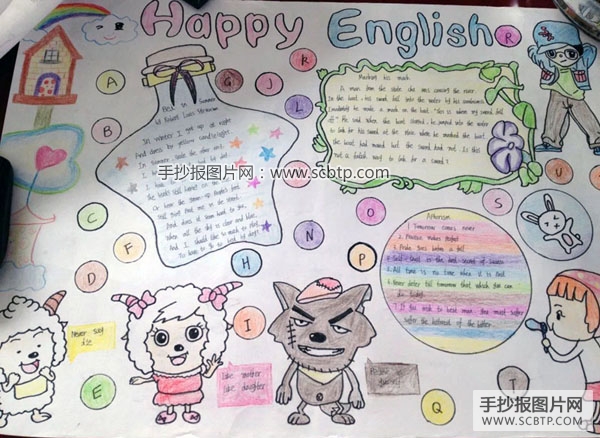 Happy English
Bed in Summer
by Robert Louis Stevenson
In winter I get up at night
And dress by yellow candle-light.
In summer, quite the other way,
I have to
The birds still
Or hear the grown-up people's feet
Still going past me in the street.
And does it not seem hard to you,
When all the sky is clear and blue,
And I should like so much to play,
To have to go to bed by day?
手抄报图片网:www.scbtp.com
Marking his
A man from the state chu was crossing the river
In the boat, his sword fell into the water
made a mark on the boat. "This is where my sword fell
off" He said. When the boat
to look for his sword at the place where he marked the boat.
The boat had moved but the sword had not. Is this
not a
way to look for a sword?
Aphorism
1 Tomorrow comes never
2. Practice makes perfect
3. Pride goes before a fall
4. Self-trust is the
secret of success
5. All time is no time when it is past
6. Never defer till tomorrow that which you can
do today.
7. If you wish to be the best man, you must suffer
the bitterest of the bitter.
A
B
C
D
E
F
G
H
I
J
K
L
N
O
P
Q
R
S
T
U
V
Never say
die
Like mother
like daughter
手抄报图片网
WWW.SCBTP.COM